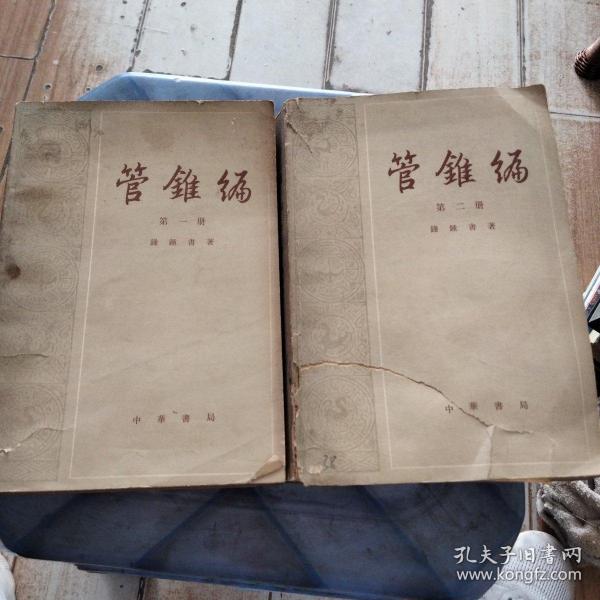 管錐編
第一册
錢鍾書著
中華書局
管錐編
第二册
錢鍾書著
中華書局
38
孔夫子旧书网
www.kongfz.com